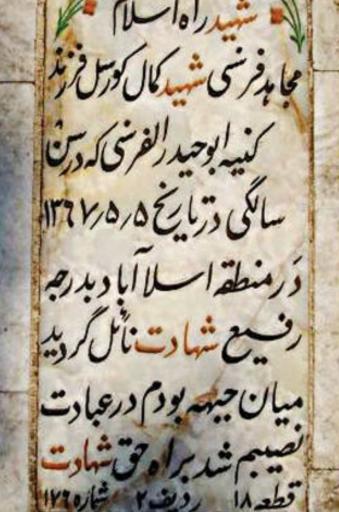 شهید راه اسلام
مجاهد فرنسی شهید کمال کورسل فرزند
کنیه ابوحیدر الفرنسی که در سن
سالگی در تاریخ ۱۳۶۷٫۵٫۵
در منطقه اسلام آباد بدرجه
رفیع شهادت نائل گردید
میان جبهه بودم در عبادت
نصیبم شد براه حق شهادت
قطعه ۱۸ ردیف ۲ شماره ۱۷۶